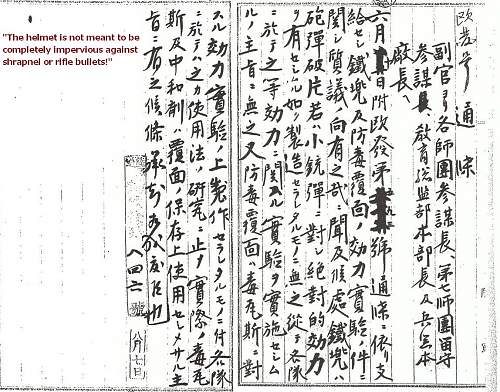 "The helmet is not meant to be
completely impervious against
shrapnel or rifle bullets!"
欧発第 通牒
副官ヨリ各師團参謀長、第七師團留守
参謀長、教育総監部本部長及兵器本
廠長、
六月 日附欧發第 號通牒ニ依リ支
給セシ鐵兜及防毒覆面ノ効力實驗ノ件ニ
関シ質議ノ向有之哉ニ聞及候處鐵兜ハ
砲彈破片若ハ小銃彈ニ對シ絶對的効力
ヲ有セシムル如ク製造セラレタルモノニ無之從テ各隊
ニ於テ之等効力ニ関スル實驗ヲ實施セシム
ル主旨ニ無之又防毒覆面ハ毒瓦斯ニ對
スル効力實驗ノ上製作セラレタルモノニ付各隊
ニ於テハ之カ使用法ノ研究ニ止メ實際ノ毒瓦
斯及中和劑ハ覆面ノ保存上使用セシメサル主
旨ニ有之候條承知
八四六號